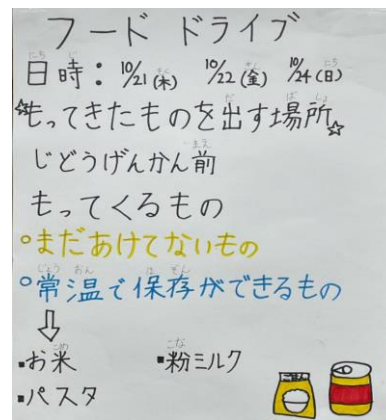 フード ドライブ
日時：10/21(木) 10/22(金) 10/24(日)
☆もってきたものを出す場所☆
じどうげんかん前
もってくるもの
○まだあけてないもの
○常温で保存ができるもの
⇩
▪お米 ▪粉ミルク
▪パスタ